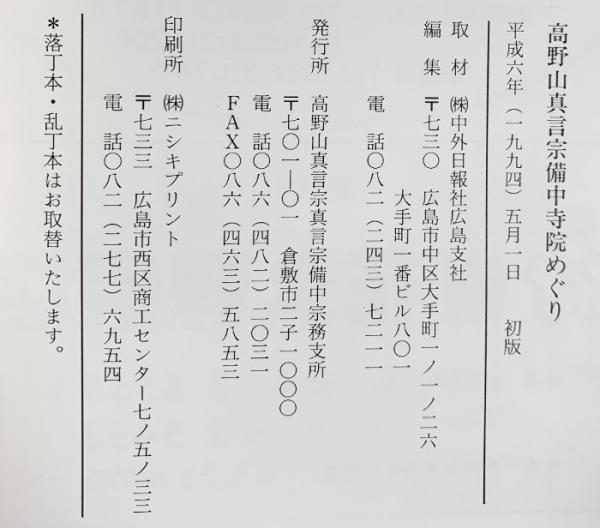 高野山真言宗備中寺院めぐり
平成六年（一九九四）五月一日　初版
取　材　㈱中外日報社広島支社
編　集　〒七三〇　広島市中区大手町一ノ一ノ二六
大手町一番ビル八〇一
電　話〇八二（二四三）七二一一
発行所　高野山真言宗真言宗備中宗務支所
〒七〇一―〇一　倉敷市二子一〇〇〇
電　話〇八六（四八二）二〇三一
ＦＡＸ〇八六（四六三）五八五三
印刷所　㈱ニシキプリント
〒七三三　広島市西区商工センター七ノ五ノ三三
電　話〇八二（二七七）六九五四
＊落丁本・乱丁本はお取替いたします。